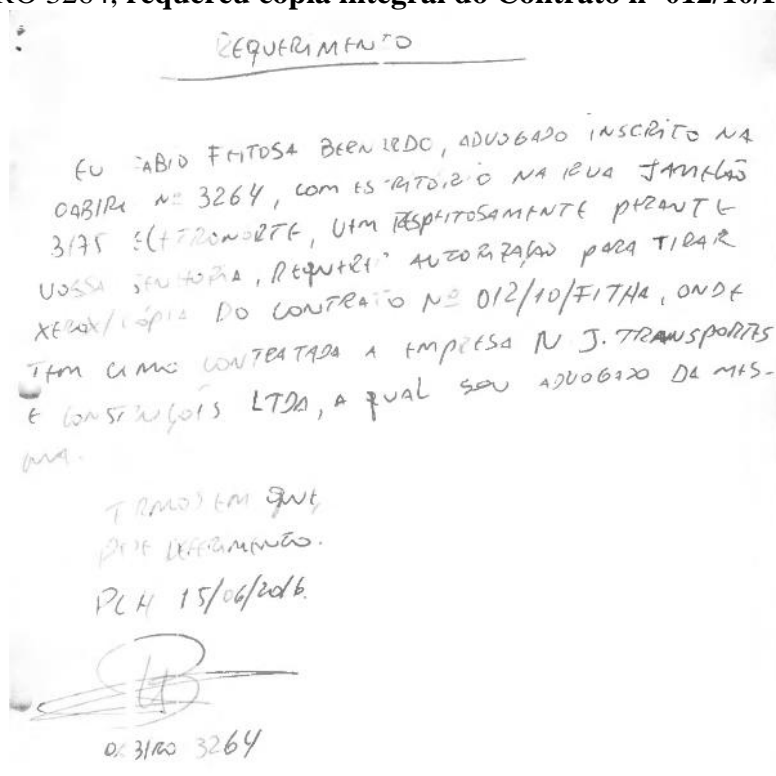 RO 3264, requereu cópia integral do Contrato nº 012/10/1
REQUERIMENTO
EU FABIO FEITOSA BERNARDO, ADVOGADO INSCRITO NA
OAB/RO Nº 3264, COM ESCRITÓRIO NA RUA JAMELÃO
3175 ELETRONORTE, VEM RESPEITOSAMENTE PERANTE
VOSSA SENHORIA, REQUERER AUTORIZAÇÃO PARA TIRAR
XEROX/CÓPIA DO CONTRATO Nº 012/10/FITHA, ONDE
TEM COMO CONTRATADA A EMPRESA N J. TRANSPORTES
E CONSTRUÇÕES LTDA, A QUAL SOU ADVOGADO DA MES-
MA.
TERMOS EM QUE,
PEDE DEFERIMENTO.
PVH 15/06/2016.
OAB/RO 3264